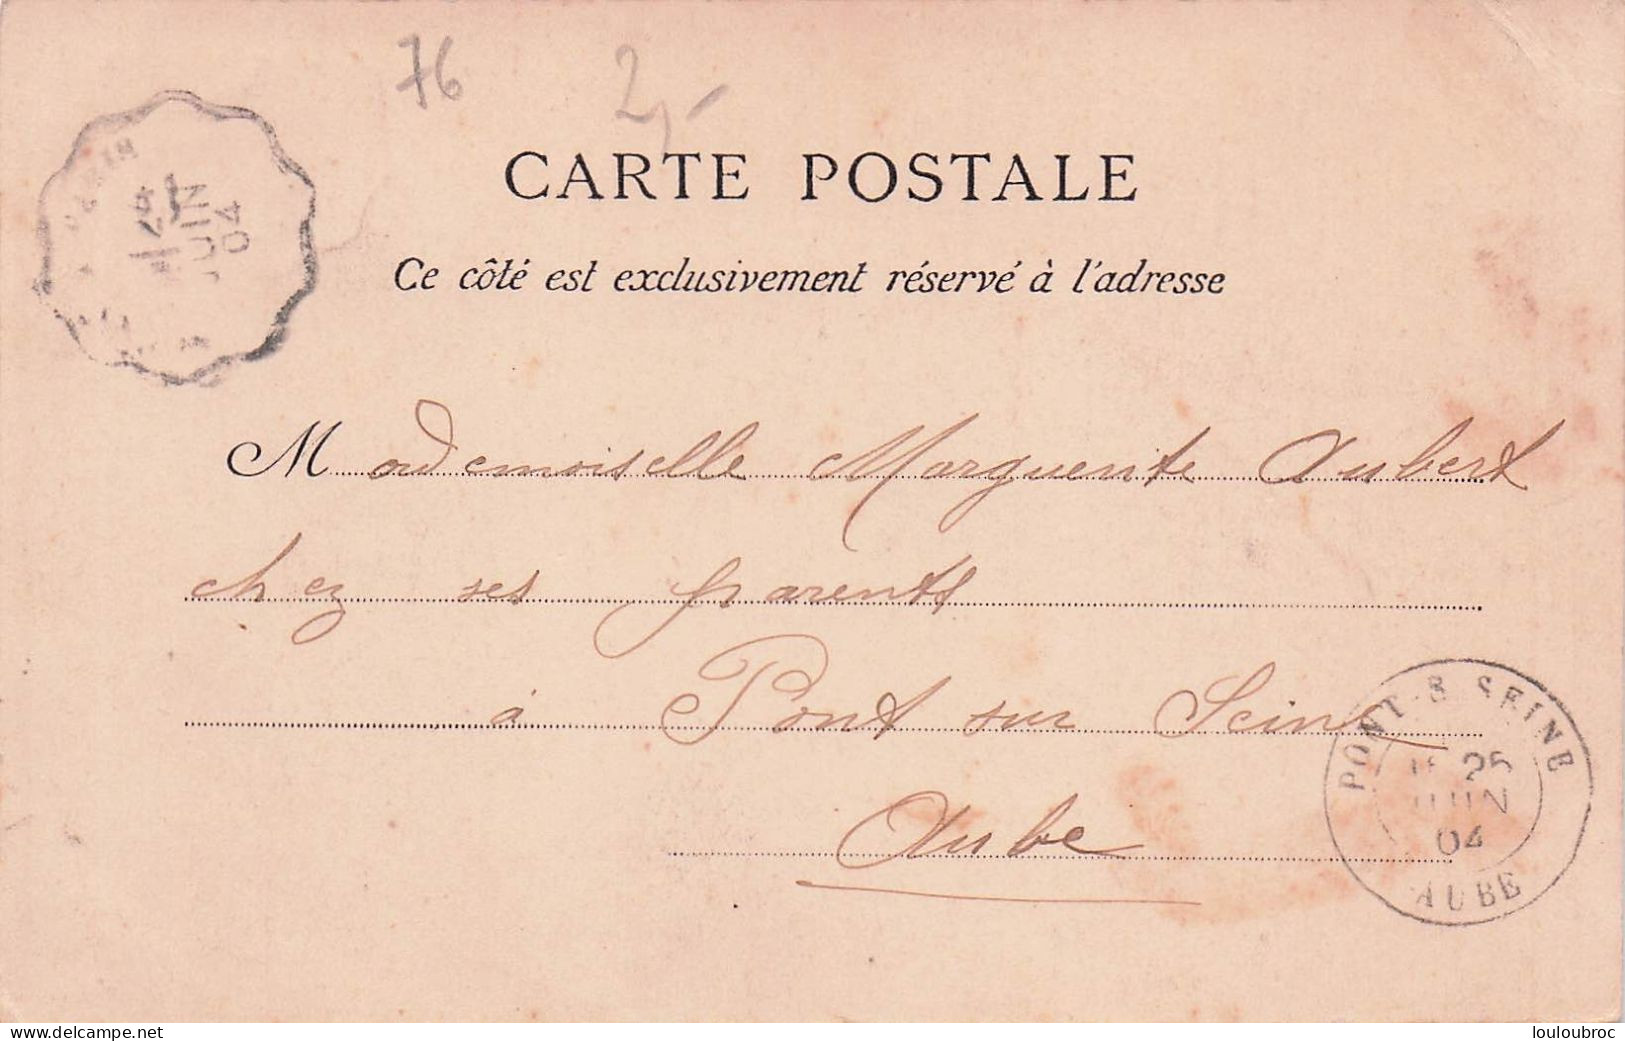 76 2,-
CARTE POSTALE
Ce côté est exclusivement réservé à l'adresse
24
JUIN
04
Mademoiselle Marguerite Aubert
chez ses parents
à Pont sur Seine
Aube
PONT-S-SEINE
25
JUIN
04
AUBE
www.delcampe.net
louloubroc